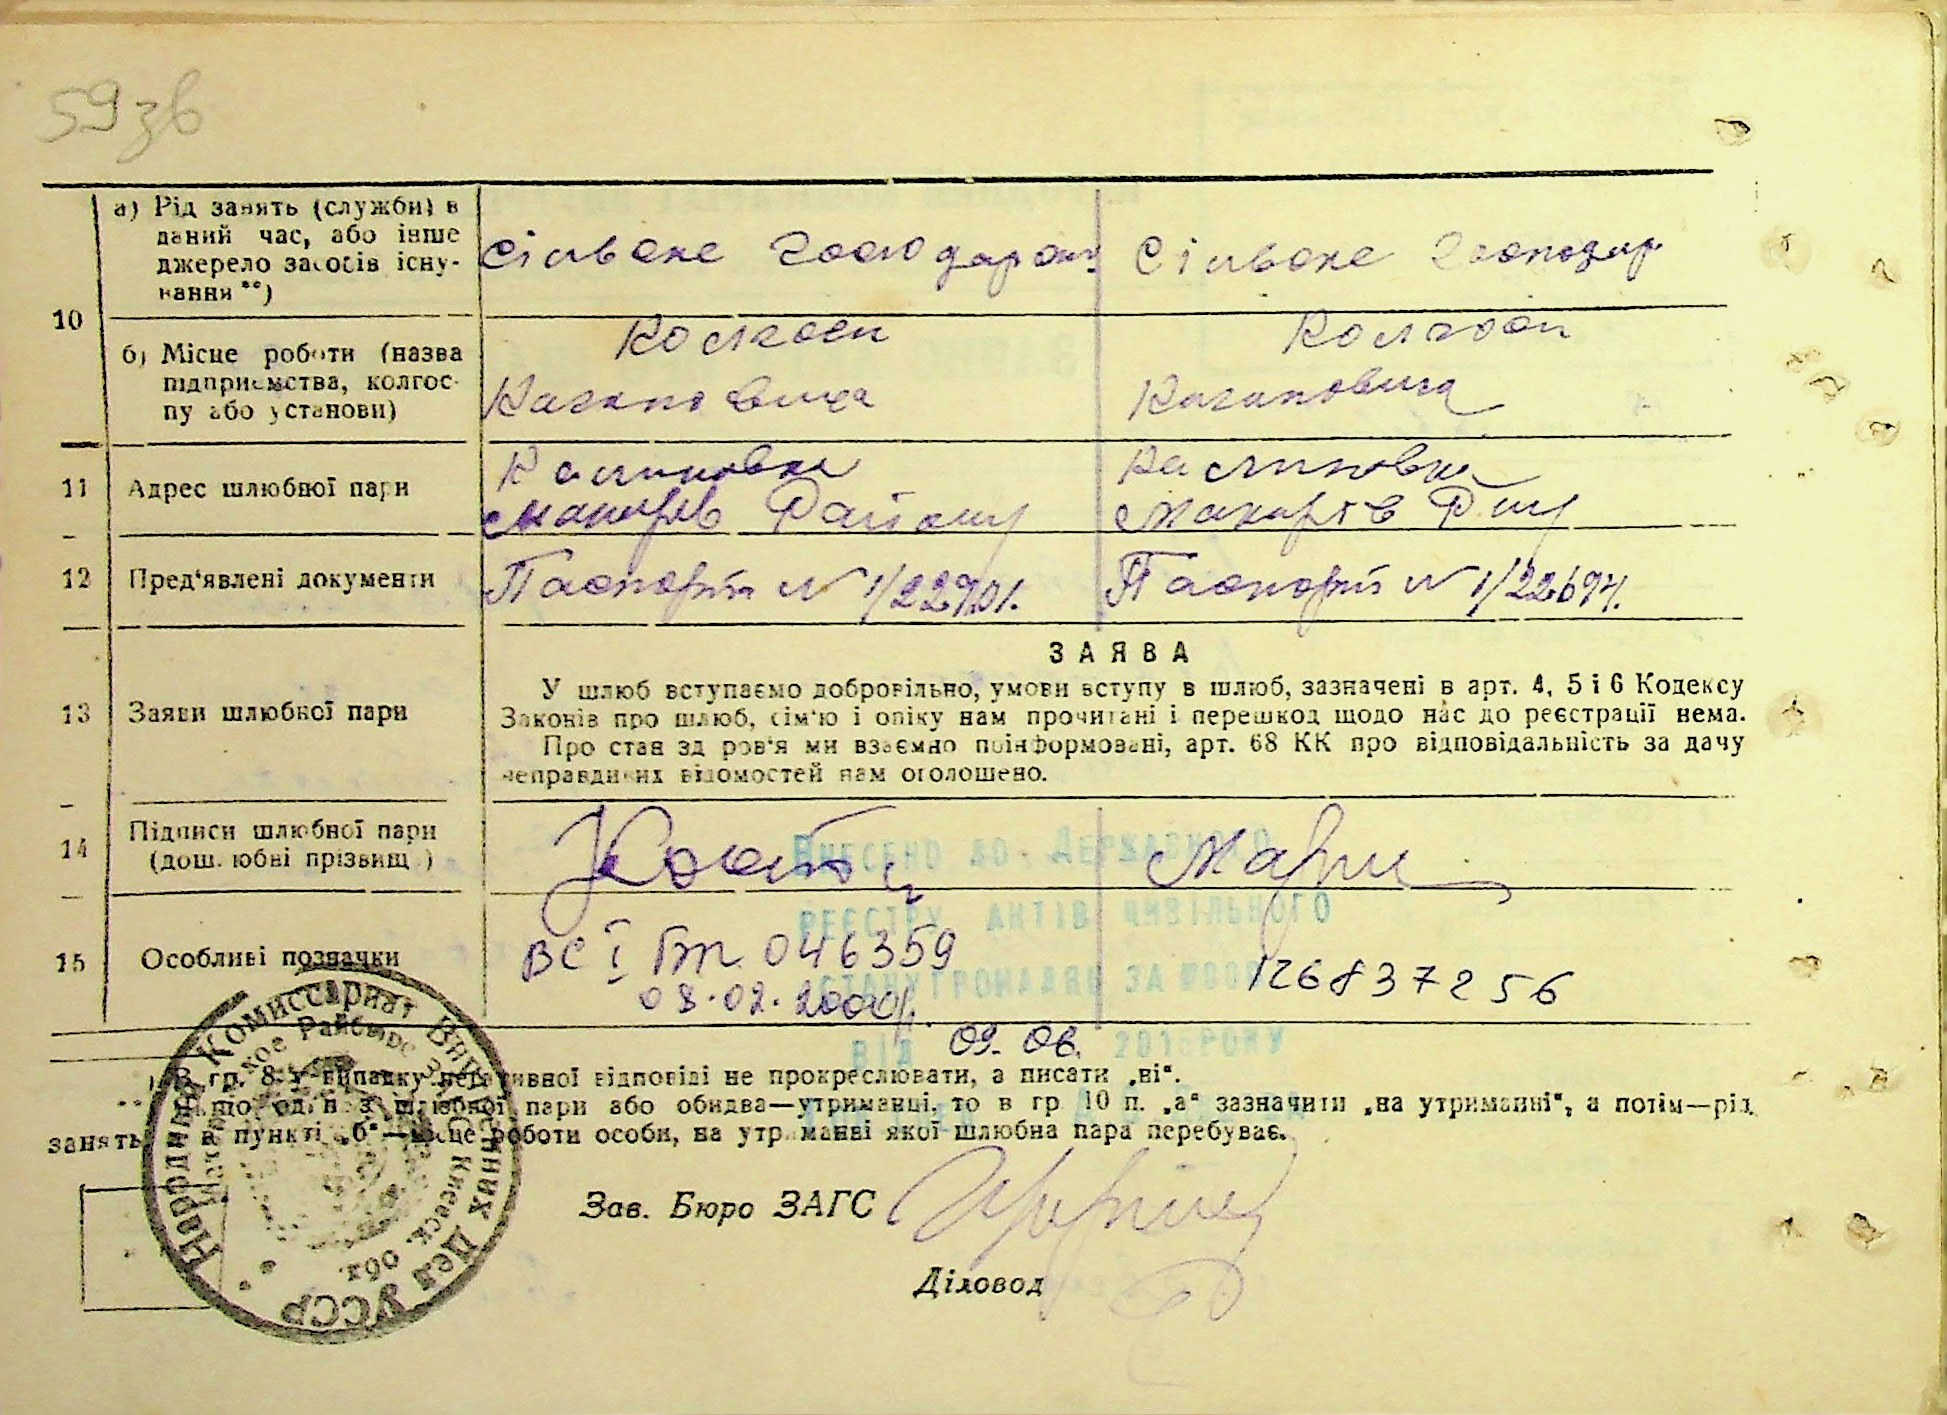 59 зв
а) Рід занять (служби) в
даний час, або інше
джерело засобів існу-
вання **)
Сільське господарст
Сільське господар
10
б) Місце роботи (назва
підприємства, колгос-
пу або установи)
Колгосп
Кагановича
Колгосп
Кагановича
11 Адрес шлюбної пари
Калиновка
Макарів Району
Калиновка
Макарів Р-ну
12 Пред'явлені документи
Паспорт N 1/22901.
Паспорт N 1/22694.
ЗАЯВА
13 Заяви шлюбної пари
У шлюб вступаємо добровільно, умови вступу в шлюб, зазначені в арт. 4, 5 і 6 Кодексу
Законів про шлюб, сім'ю і опіку нам прочитані і перешкод щодо нас до реєстрації нема.
Про стан здоров'я ми взаємно поінформовані, арт. 68 КК про відповідальність за дачу
неправдивих відомостей нам оголошено.
14 Підписи шлюбної пари
(дошлюбні прізвища)
Внесено до Державного
реєстру актів цивільного
стану громадян за №00
1268372 56
від 09.06. 201 року
15 Особливі позначки
ВС І БК 046359
08.02.2000р.
В гр. 8 у випадку негативної відповіді не прокреслювати, а писати „ні“.
Якщо один з шлюбної пари або обидва—утриманці, то в гр 10 п. „а“ зазначити „на утриманні“, а потім—рід
занять, а в пункті „б“—місце роботи особи, на утриманні якої шлюбна пара перебуває.
Народний Комиссариат Внутренних Дел УССР
Киевск. обл.
Зав. Бюро ЗАГС
Діловод